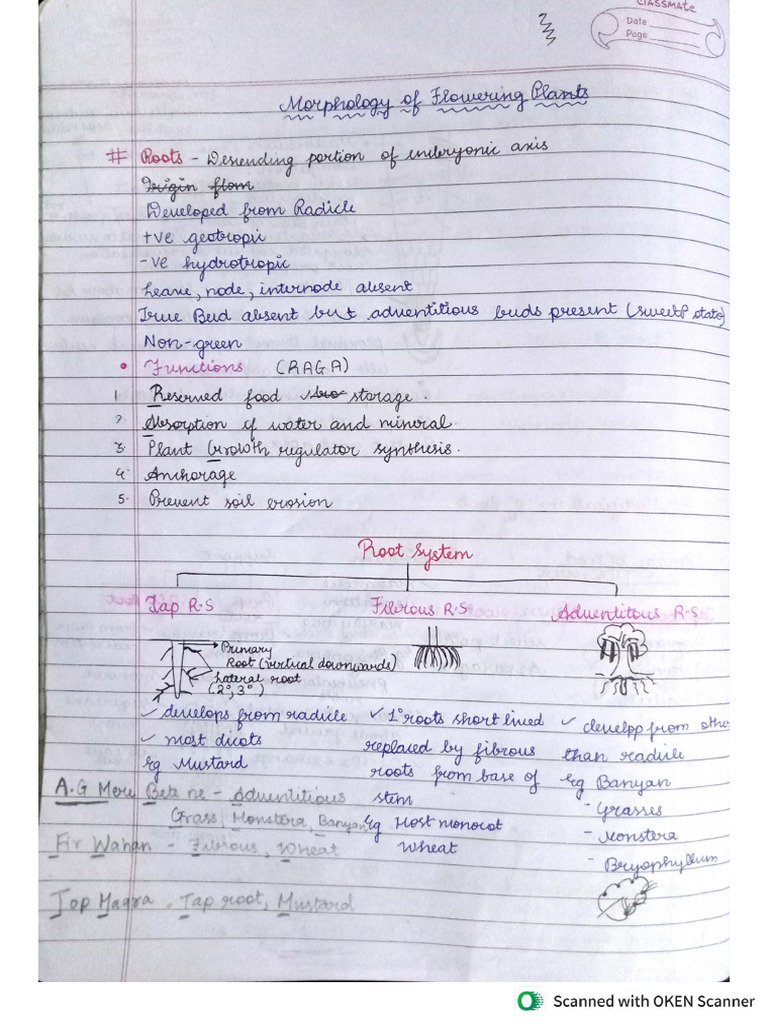 CLASSMATE
Date
Page
Morphology of Flowering Plants
# Roots - Descending portion of embryonic axis
Origin from
Developed from Radicle
+ve geotropic
-ve hydrotropic
Leave, node, internode absent
True Bud absent but adventitious buds present (sweetP stato)
Non-green
• Functions (RAGA)
1. Reserved food sto storage.
2. Absorption of water and mineral.
3. Plant Growth regulator synthesis.
4. Anchorage
5. Prevent soil erosion
Root System
Tap R.S Fibrous R.S Adventitous R.S
Primary
Root (virtical downwards)
Lateral root
(2°, 3°)
✓ develops from radicle
✓ most dicots
Eg Mustard
✓ 1° roots short lined
replaced by fibrous
roots from base of
stem
Eg Most monocot
Wheat
✓ develop from othe
than radicle
Eg Banyan
- Grasses
- Monstera
- Bryophyllum
A.G Mere Bete ne - Adventitious
Grass, Monstera, Banyan
Fir Wahan - Fibrous, Wheat
Top Magra, Tap root, Mustard
Scanned with OKEN Scanner